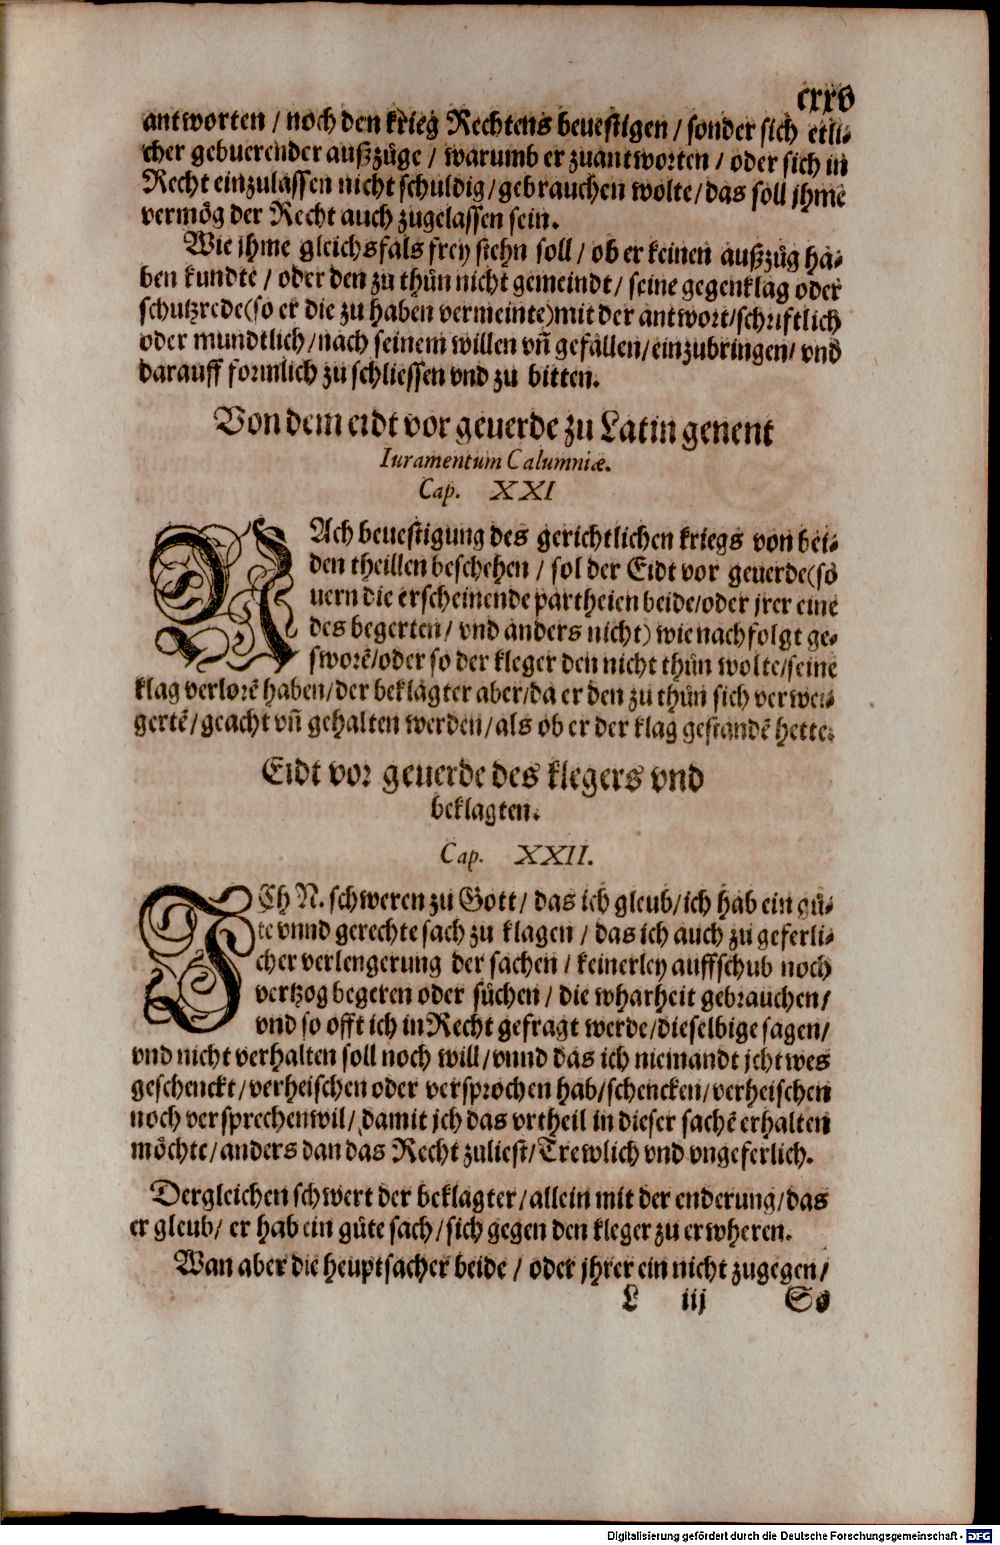 cxxv
antworten / noch den krieg Rechtens beuestigen / sonder sich etli⸗
cher gebuerender außzüge / warumb er zuantworten / oder sich in
Recht einzulassen nicht schuldig / gebrauchen wolte / das soll jhme
vermög der Recht auch zugelassen sein.
Wie jhme gleichsfals frey stehn soll / ob er keinen außzüg ha⸗
ben kundte / oder den zu thůn nicht gemeindt / seine gegenklag oder
schutzrede (so er die zu haben vermeinte) mit der antwort / schriftlich
oder mundtlich / nach seinem willen vñ gefallen / einzubringen / vnd
darauff formlich zu schliessen vnd zu bitten.
Von dem eidt vor geuerde zu Latin genent
Iuramentum Calumniæ.
Cap. XXI
NAch beuestigung des gerichtlichen kriegs von bei⸗
den theillen beschehen / sol der Eidt vor geuerde (so
uern die erscheinende partheien beide / oder jrer eine
des begerten / vnd anders nicht) wie nachfolgt ge⸗
sworẽ / oder so der kleger den nicht thůn wolte / seine
klag verlorẽ haben / der beklagter aber / da er den zu thůn sich verwei⸗
gertẽ / geacht vñ gehalten werden / als ob er der klag gestandẽ hette.
Eidt vor geuerde des klegers vnd
beklagten.
Cap. XXII.
ICh N. schweren zu Gott / das ich gleub / ich hab ein gů⸗
te vnnd gerechte sach zu klagen / das ich auch zu geferli⸗
cher verlengerung der sachen / keinerley auffschub noch
vertzog begeren oder sůchen / die wharheit gebrauchen /
vnd so offt ich in Recht gefragt werde / dieselbige sagen /
vnd nicht verhalten soll noch will / vnnd das ich niemandt jchtwes
geschenckt / verheischen oder versprochen hab / schencken / verheischen
noch versprechen wil / damit jch das vrtheil in dieser sachẽ erhalten
möchte / anders dan das Recht zuliest / Trewlich vnd vngeferlich.
Dergleichen schwert der beklagter / allein mit der enderung / das
er gleub / er hab ein gůte sach / sich gegen den kleger zu erwheren.
Wan aber die heuptsacher beide / oder jhrer ein nicht zugegen /
L iij So
Digitalisierung gefördert durch die Deutsche Forschungsgemeinschaft - DFG